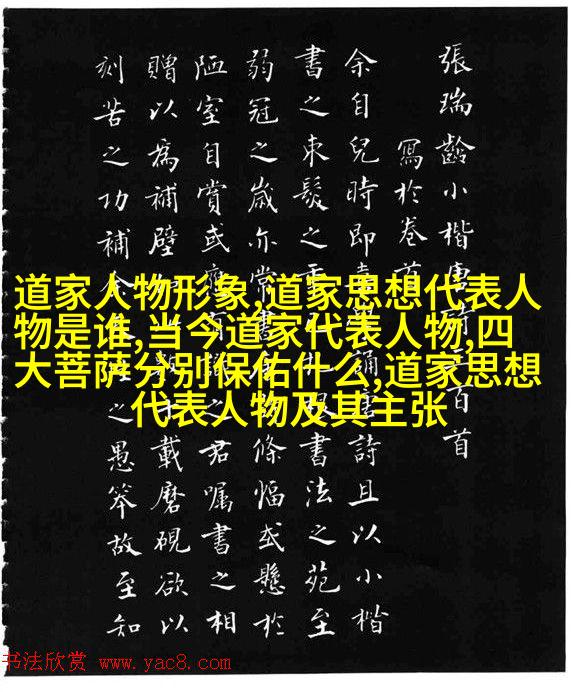 張瑞齡小楷唐詩百首
寫於卷首
余自兒時即喜誦唐詩且以小楷
書之束髮之書法之苑至
弱冠之歲亦常書條幅或懸於
陋室自賞或應之君囑書之相
贈以為補壁載磨硯欲以
刻苦之功補余之愚笨故至知
道家人物形象,道家思想代表人
物是谁,当今道家代表人物,四
大菩萨分别保佑什么,道家思想
代表人物及其主张
书法欣赏 www.yac8.com